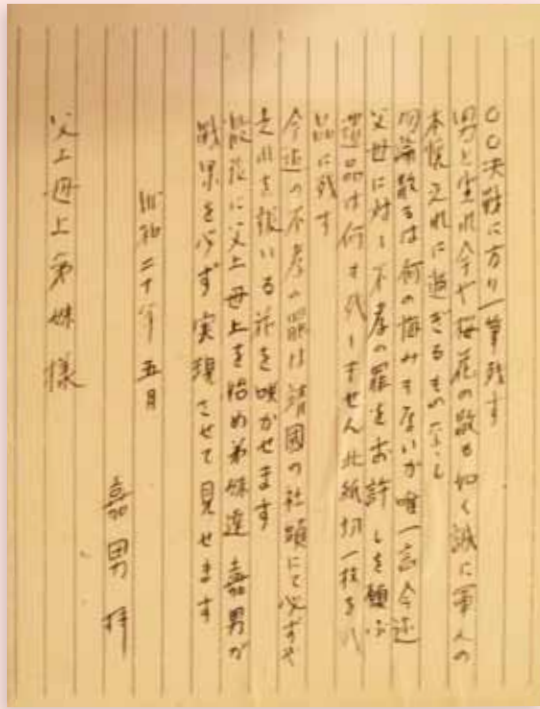 〇〇決戦に方り一筆残す
男と生れ今や桜花の散る如く誠に軍人の
本懐之れに過ぎるものなし
勿論散るは何の悔みもないが唯一言今迄
父母に対し不孝の罪をお許しを願ふ
遺品は何も残しません此紙切一枚を
品に残す
今迄の不孝の罪は靖國の社頭にて必ずや
是れを報いる花を咲かせます
最後に父上母上を始め弟妹達 嘉男が
戦果を必ず実現させて見せます
昭和二十年五月
嘉男拝
父上母上弟妹様